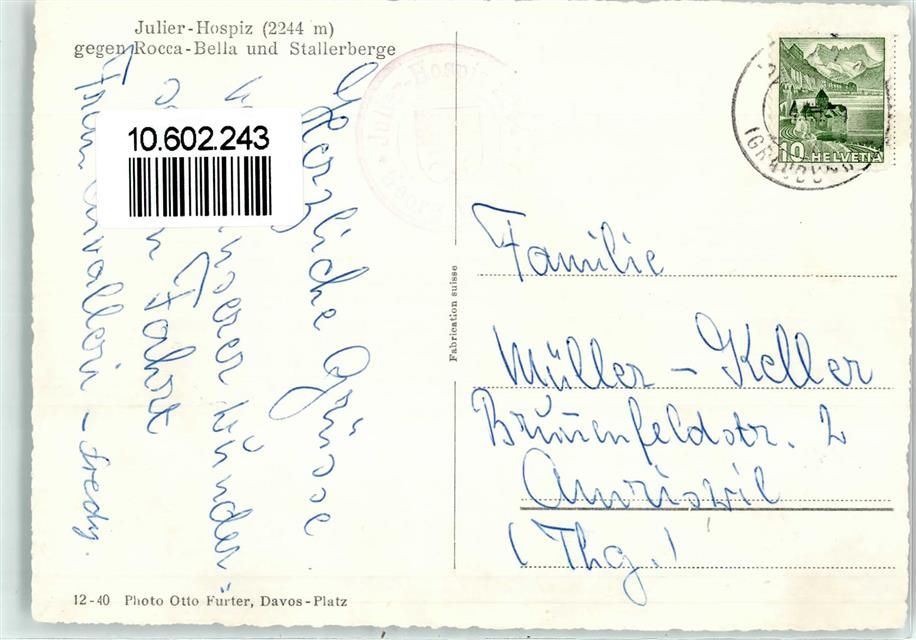 Julier-Hospiz (2244 m)
gegen Rocca-Bella und Stallerberge
10.602.243
Herzliche Grüsse
unserer wunder
Fahrt
Fredy.
Julier-Hospiz
10 HELVETIA
(GRAUBÜND
Familie
Müller - Keller
Brunnenfeldstr. 2
Amriswil
(Thg.)
Fabrication suisse
12-40 Photo Otto Furter, Davos-Platz